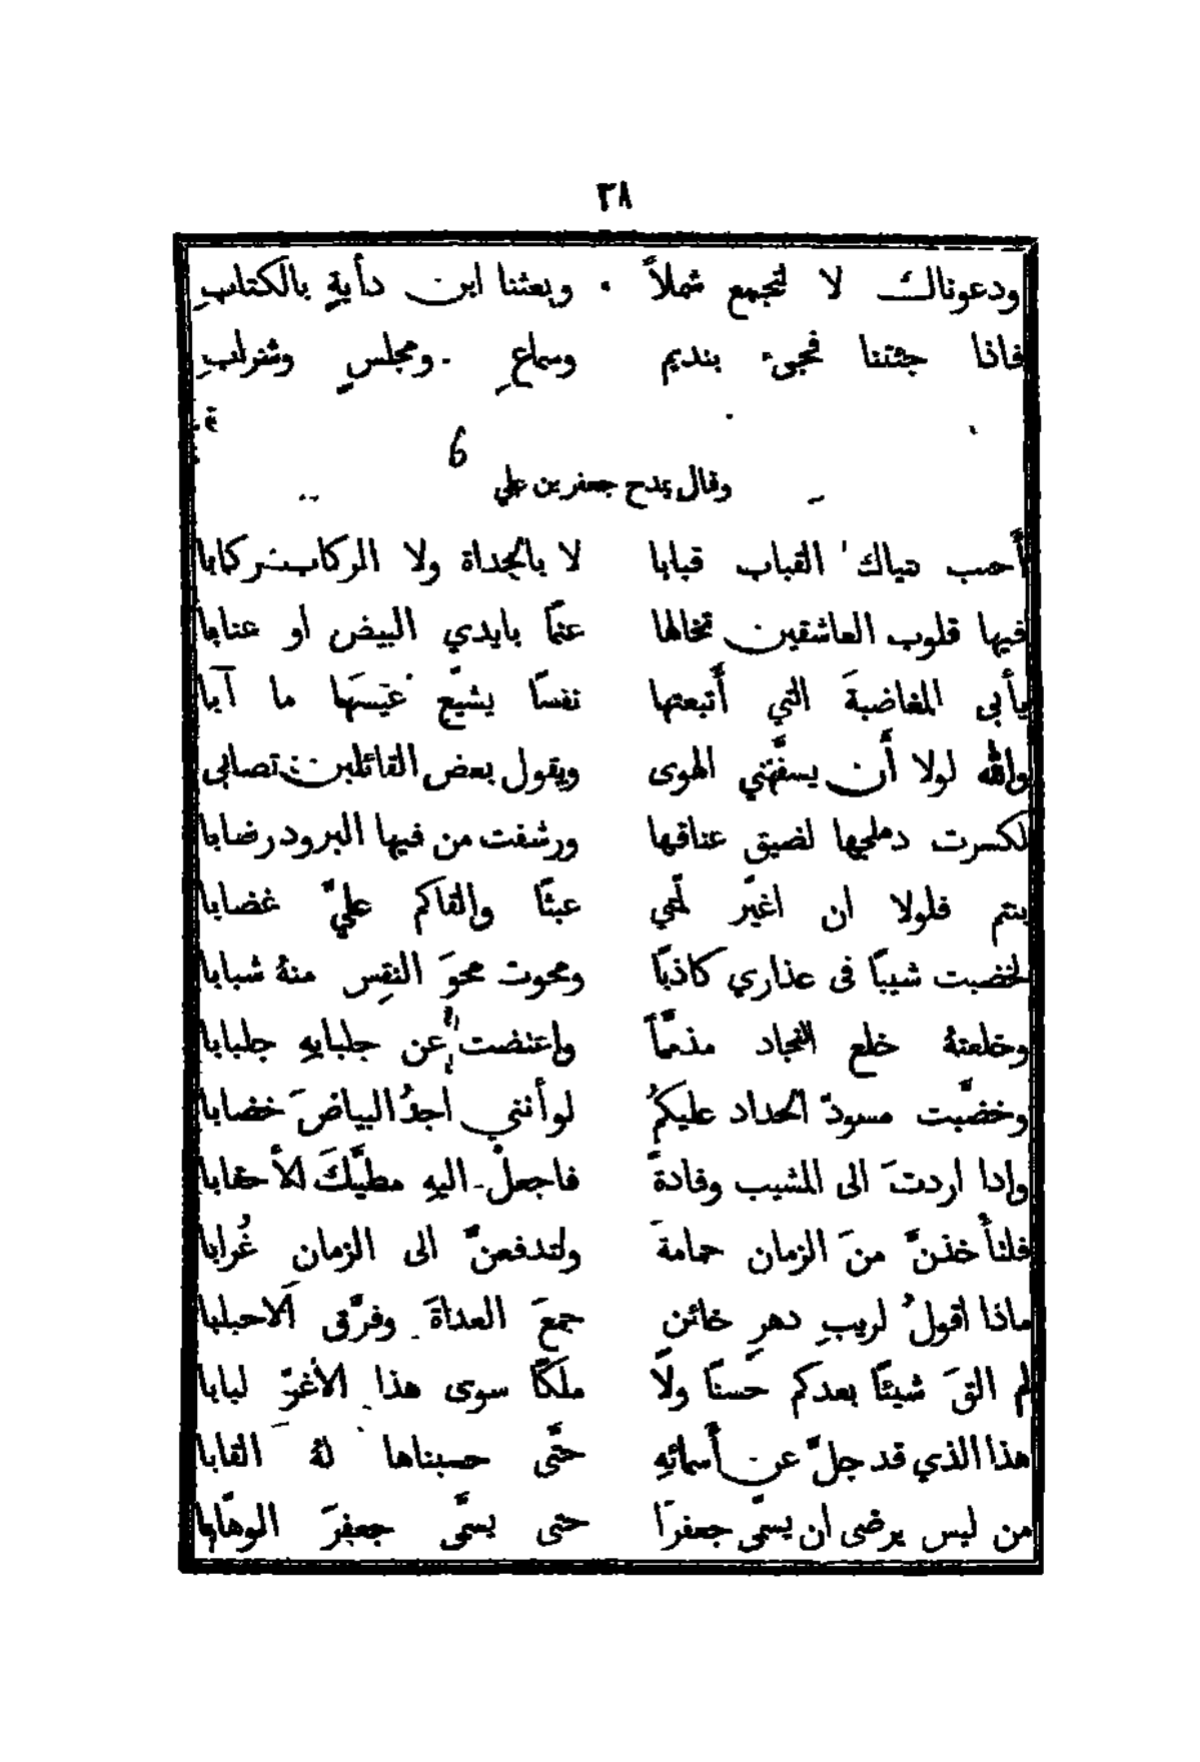 ٢٨
ودعوناك لا لتجمع شملاً وبعثنا ابن دأيةٍ بالكتابِ
فاذا جئتنا فجىء بنديم وسماعٍ ومجلسٍ وشرابِ
6
وقال يمدح جعفر بن علي
أحبب بتياك القباب قبابا لا بالحداة ولا الركاب ركابا
فيها قلوب العاشقين تخالها عنمًا بايدي البيض او عنابا
بأبي المغاضبةَ التي أتبعتها نفسًا يشيّع عيسَهَا ما آبا
والله لولا أن يسفّهني الهوى ويقول بعض القائلين تصابى
لكسرت دملجها لضيق عناقها ورشفت من فيها البرود رضابا
بنتم فلولا ان اغيّر لمّتي عبثًا والقاكم عليّ غضابا
لخضبت شيبًا فى عذاري كاذبًا ومحوت محوَ النقِس منهُ شبابا
وخلعتهُ خلع النجاد مذمّمًا واعتضت عن جلبابهِ جلبابا
وخضّبت مسودّ الحداد عليكمُ لو أنني اجدُ البياضَ خضابا
واذا اردتَ الى المشيب وفادةً فاجعلْ اليهِ مطيَّكَ الأحقابا
فلتأخذنّ منَ الزمان حمامةً ولتدفعنّ الى الزمان غُرابا
ماذا اقولُ لريبِ دهرٍ خائن جمعَ العداةَ وفرَّق الاحبابا
لم القَ شيئًا بعدكم حَسنًا ولاَ ملَكًا سوى هذا الأغرّ لبابا
هذا الذي قد جلّ عن أسمائهِ حتَّى حسبناها لهُ القابا
من ليس يرضى ان يسمّى جعفرًا حتى يسمَّى جعفرَ الوهّابا